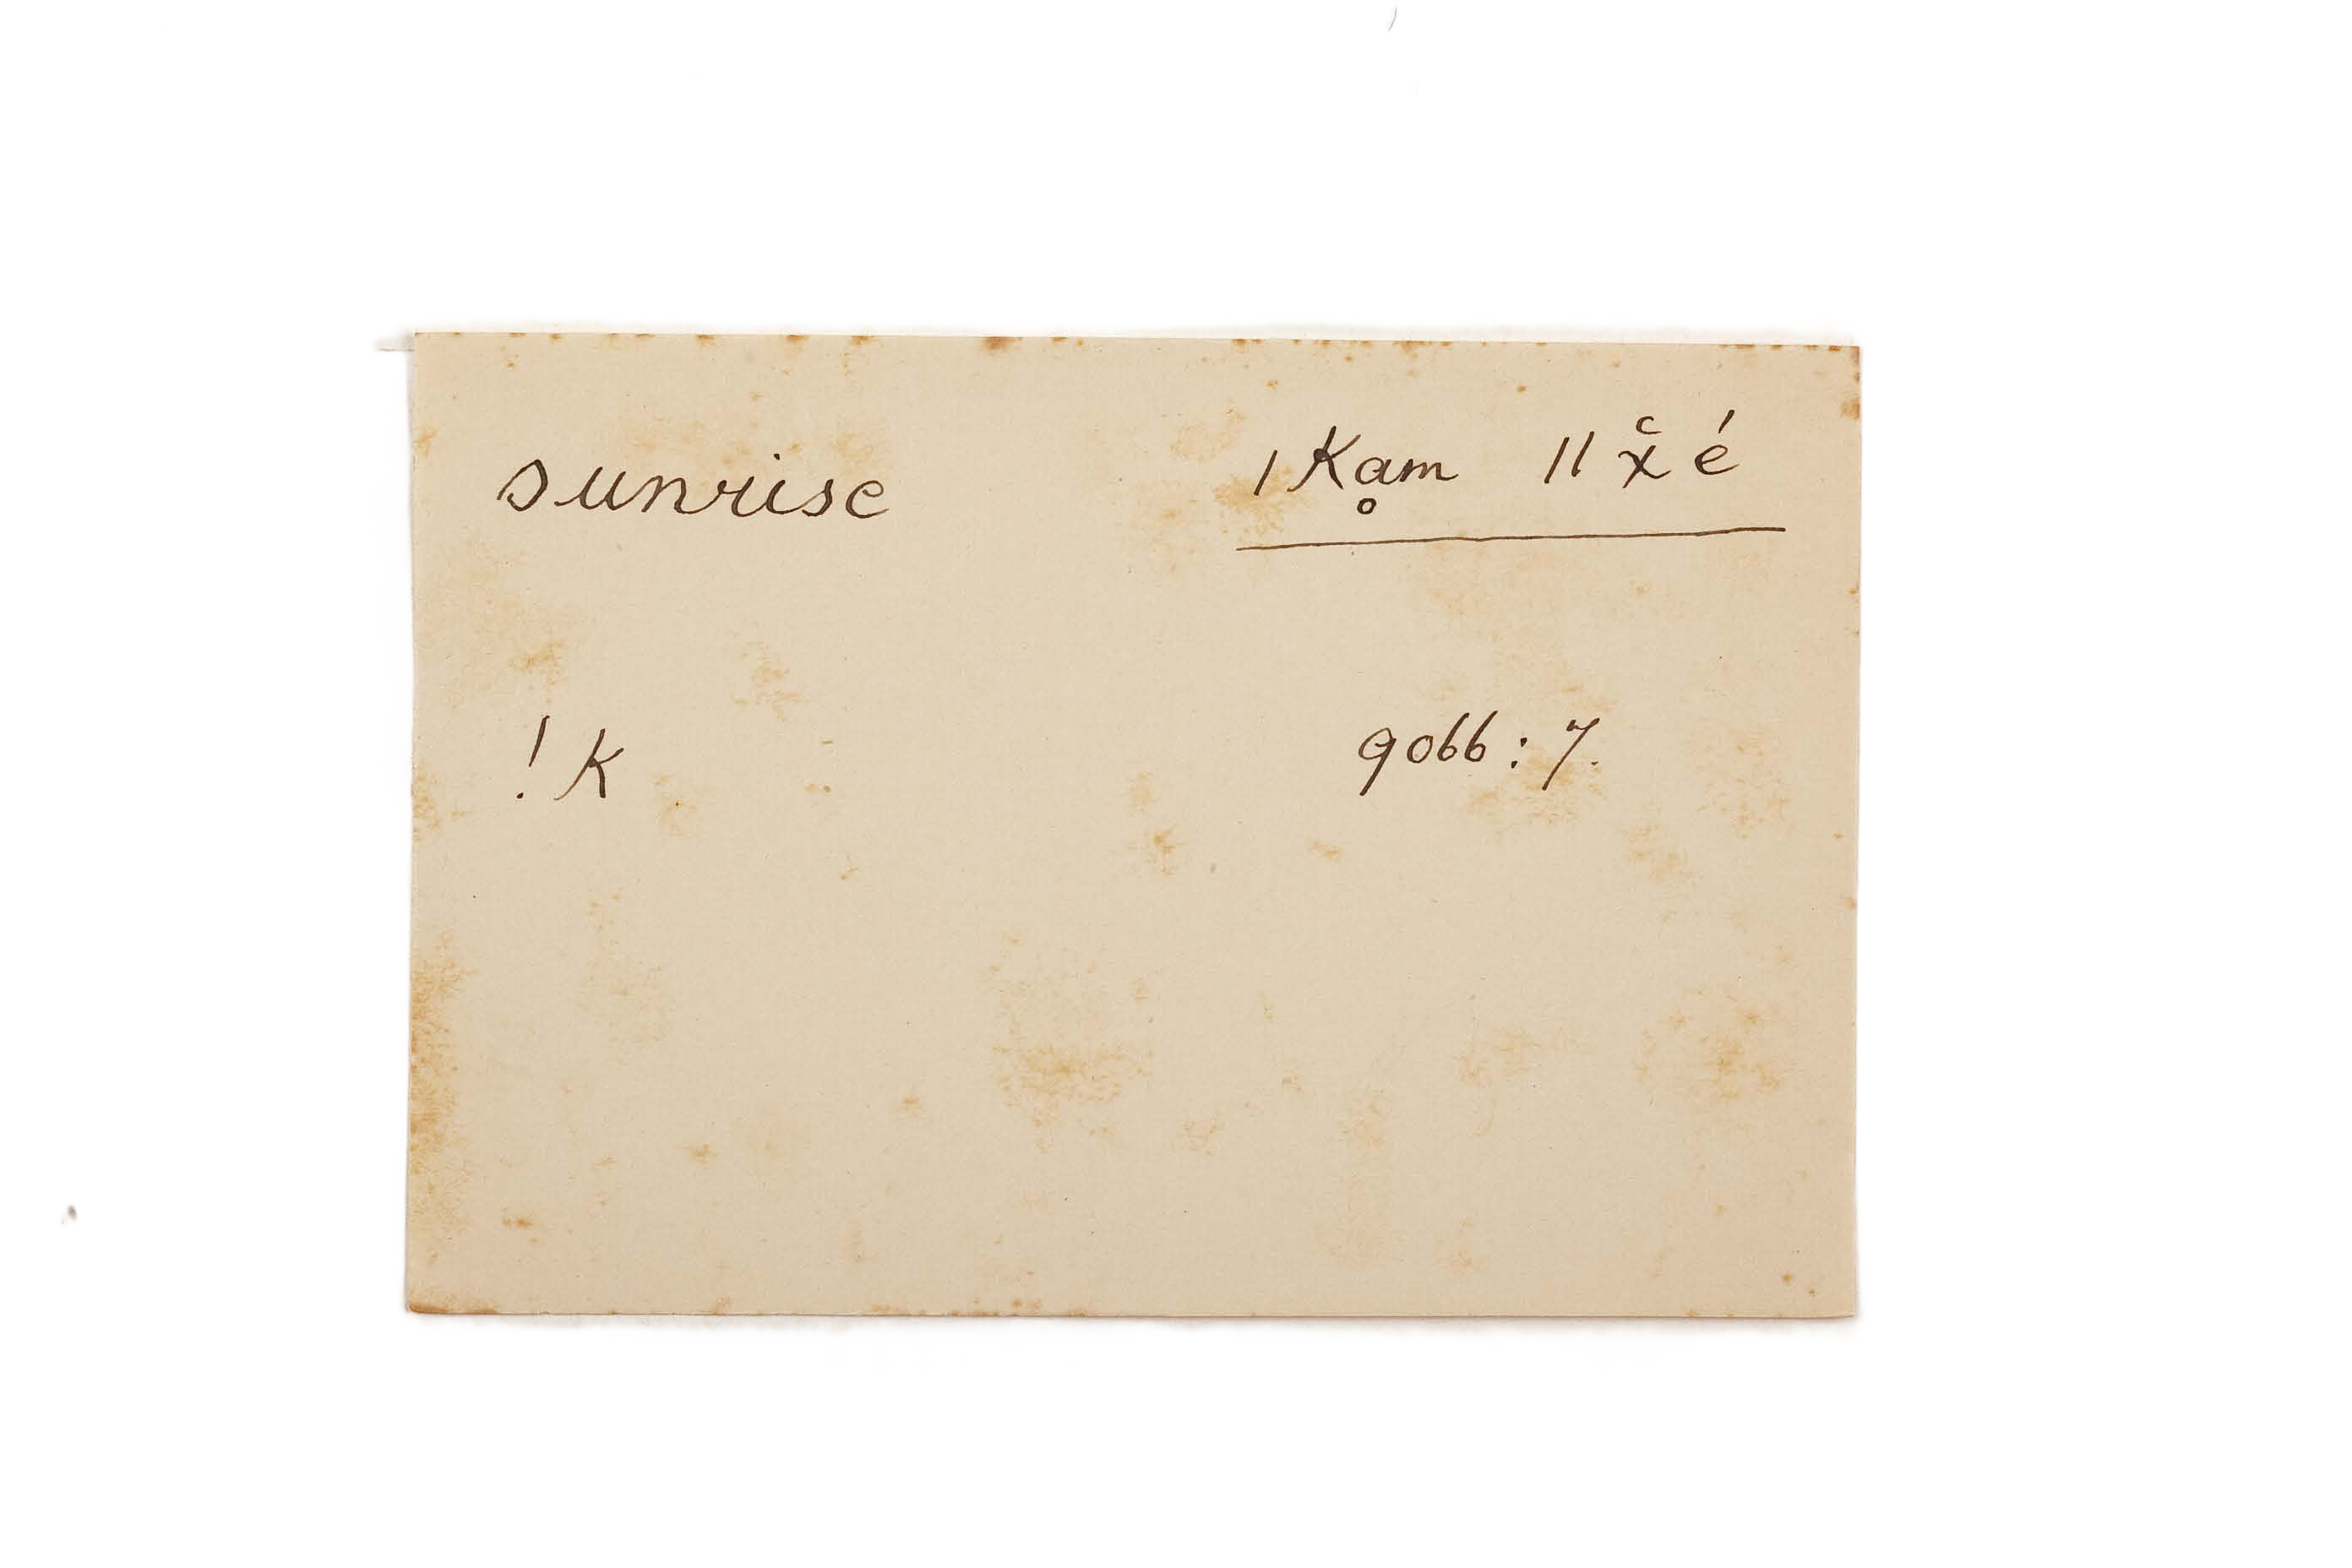 sunrise ǀKḁm ǁχ̆é
!K 9066:7.